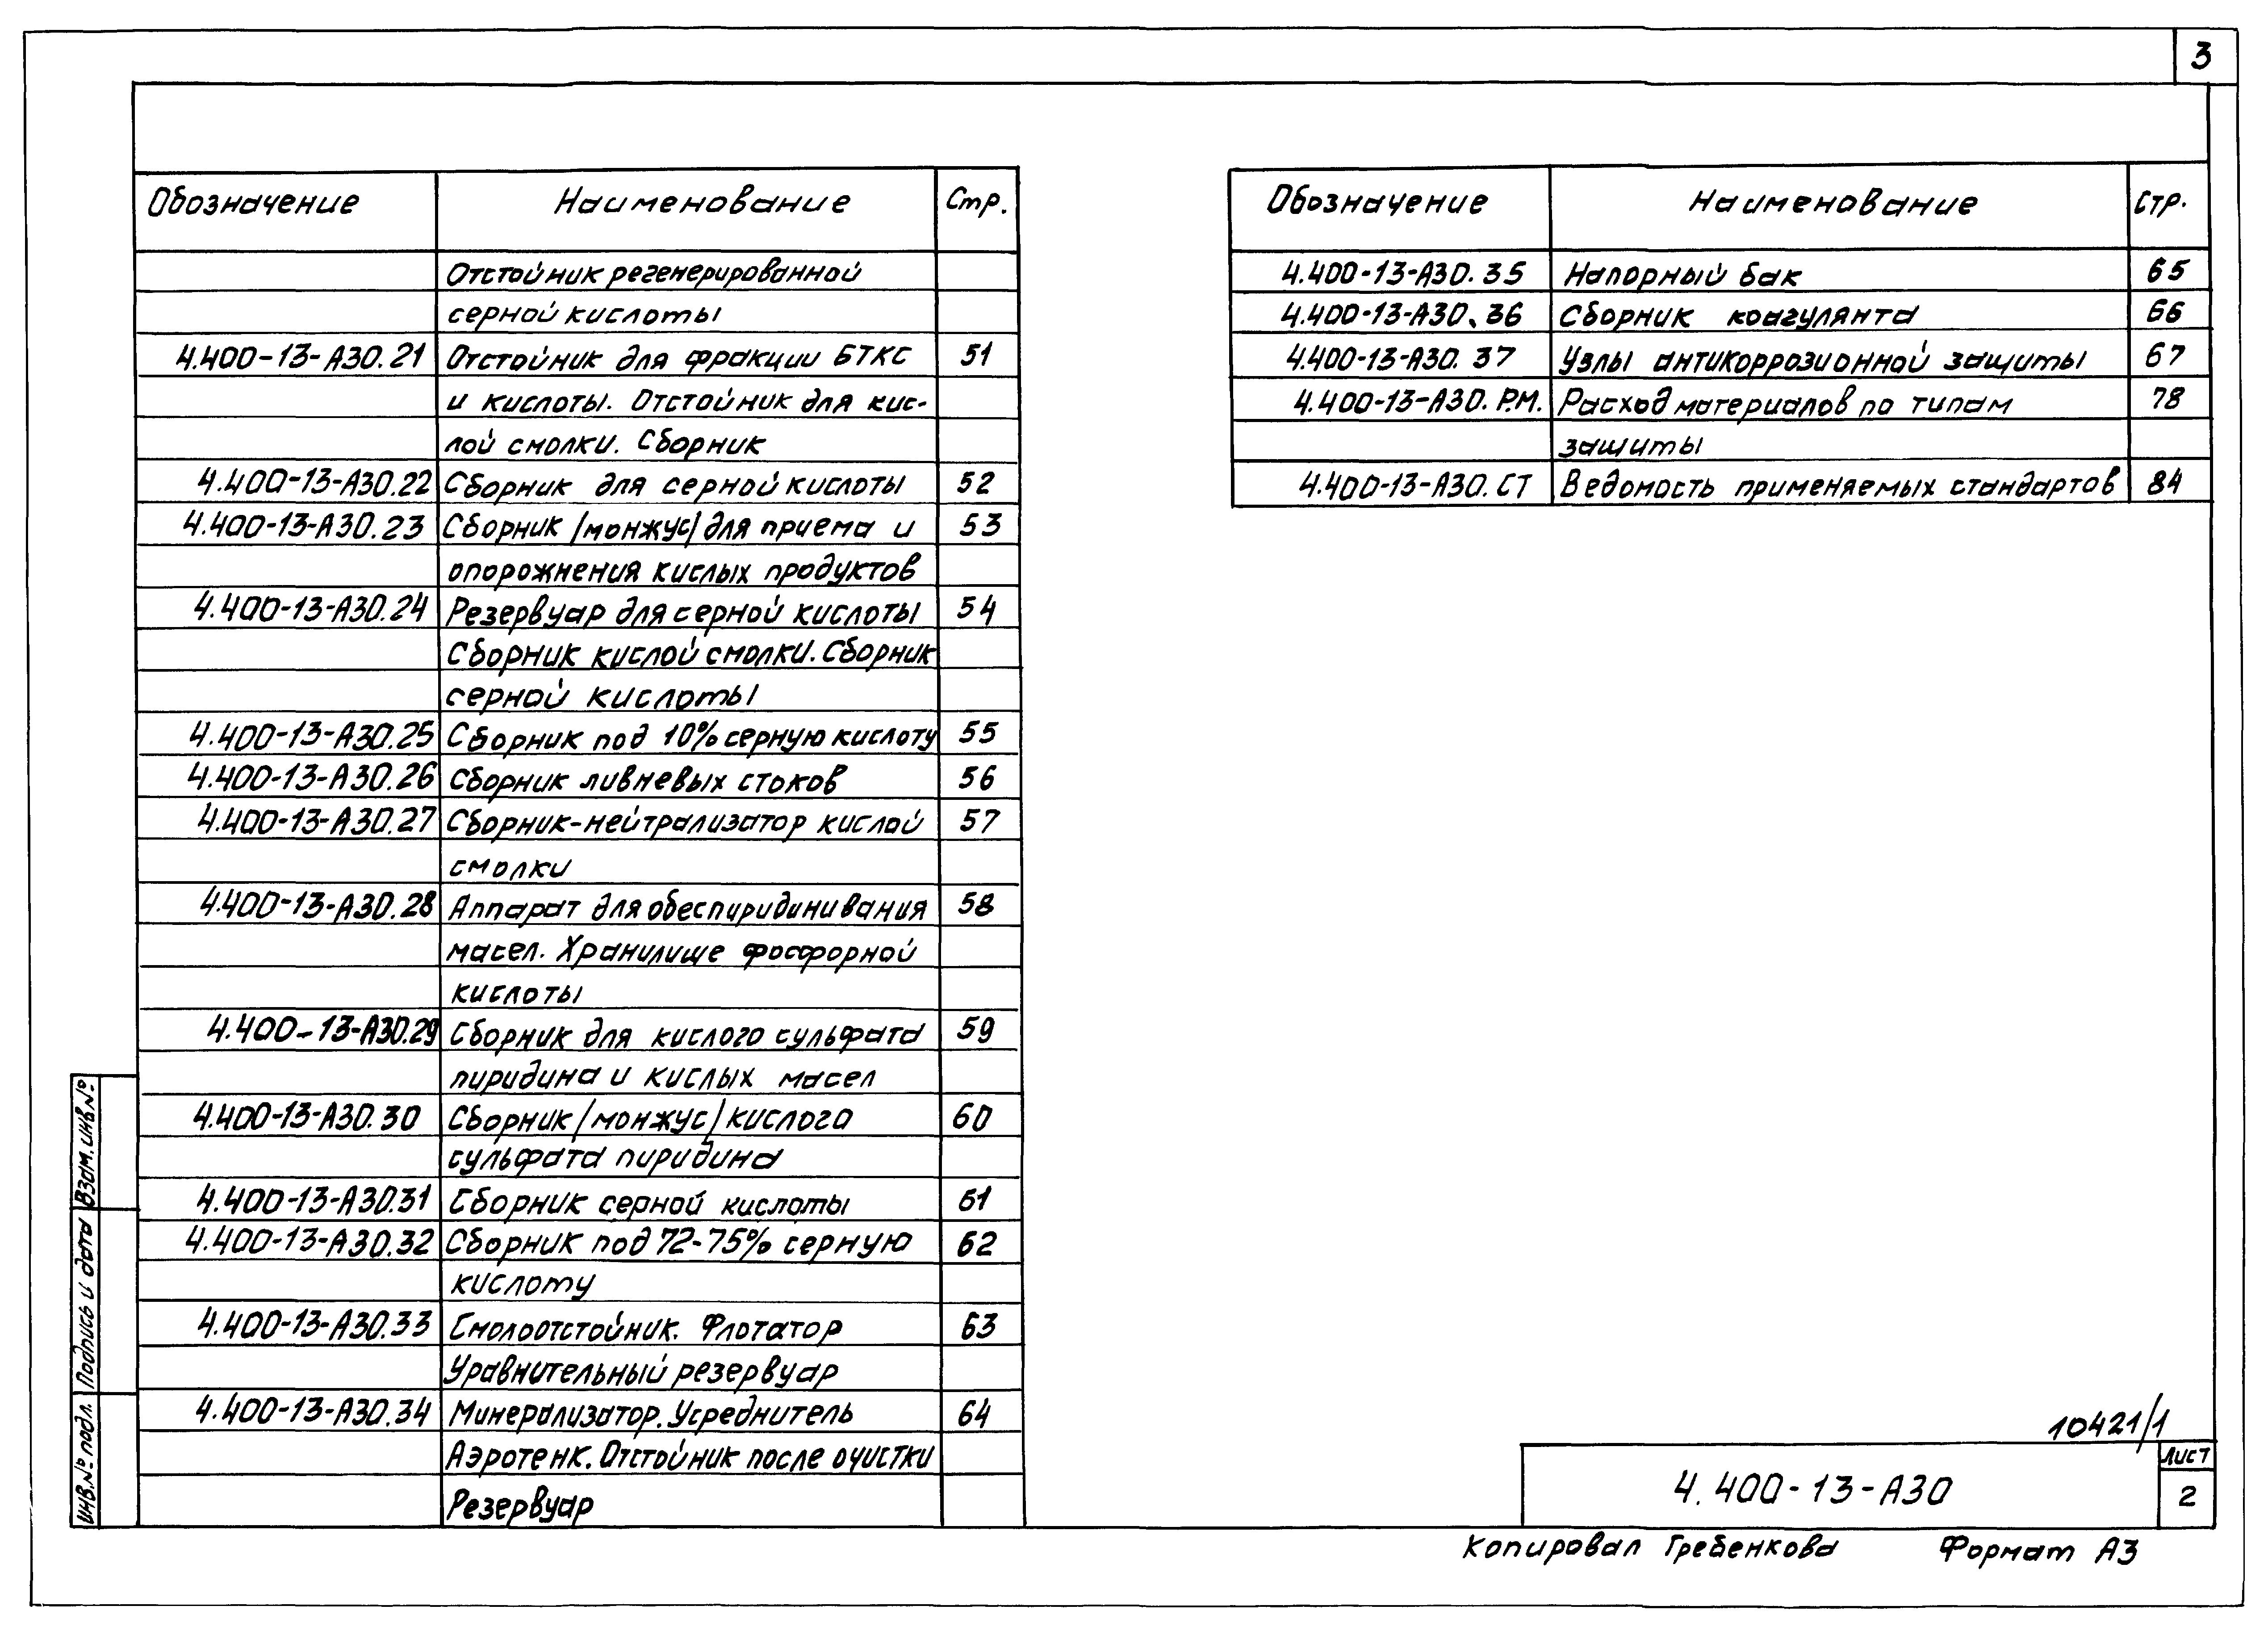 3
Обозначение Наименование Стр.
Отстойник регенерированной
серной кислоты
4.400-13-АЗО.21 Отстойник для фракции БТКС 51
и кислоты. Отстойник для кис-
лой смолки. Сборник
4.400-13-АЗО.22 Сборник для серной кислоты 52
4.400-13-АЗО.23 Сборник /монжус/ для приема и 53
опорожнения кислых продуктов
4.400-13-АЗО.24 Резервуар для серной кислоты 54
Сборник кислой смолки. Сборник
серной кислоты
4.400-13-АЗО.25 Сборник под 10% серную кислоту 55
4.400-13-АЗО.26 Сборник ливневых стоков 56
4.400-13-АЗО.27 Сборник-нейтрализатор кислой 57
смолки
4.400-13-АЗО.28 Аппарат для обеспиридинивания 58
масел. Хранилище фосфорной
кислоты
4.400-13-АЗО.29 Сборник для кислого сульфата 59
пиридина и кислых масел
4.400-13-АЗО.30 Сборник /монжус/ кислога 60
сульфата пиридина
4.400-13-АЗО.31 Сборник серной кислоты 61
4.400-13-АЗО.32 Сборник под 72-75% серную 62
кислоту
4.400-13-АЗО.33 Смолоотстойник. Флотатор 63
Уравнительный резервуар
4.400-13-АЗО.34 Минерализатор. Усреднитель 64
Аэротенк. Отстойник после очистки
Резервуар
Обозначение Наименование Стр.
4.400-13-АЗО.35 Напорный бак 65
4.400-13-АЗО.36 Сборник коагулянта 66
4.400-13-АЗО.37 Узлы антикоррозионной защиты 67
4.400-13-АЗО.Р.М. Расход материалов по типам 78
защиты
4.400-13-АЗО.СТ Ведомость применяемых стандартов 84
Взам. инв №
Подпись и дата
Инв. № подл.
10421/1
4.400-13-АЗО
Лист
2
Копировал Гребенкова Формат А3